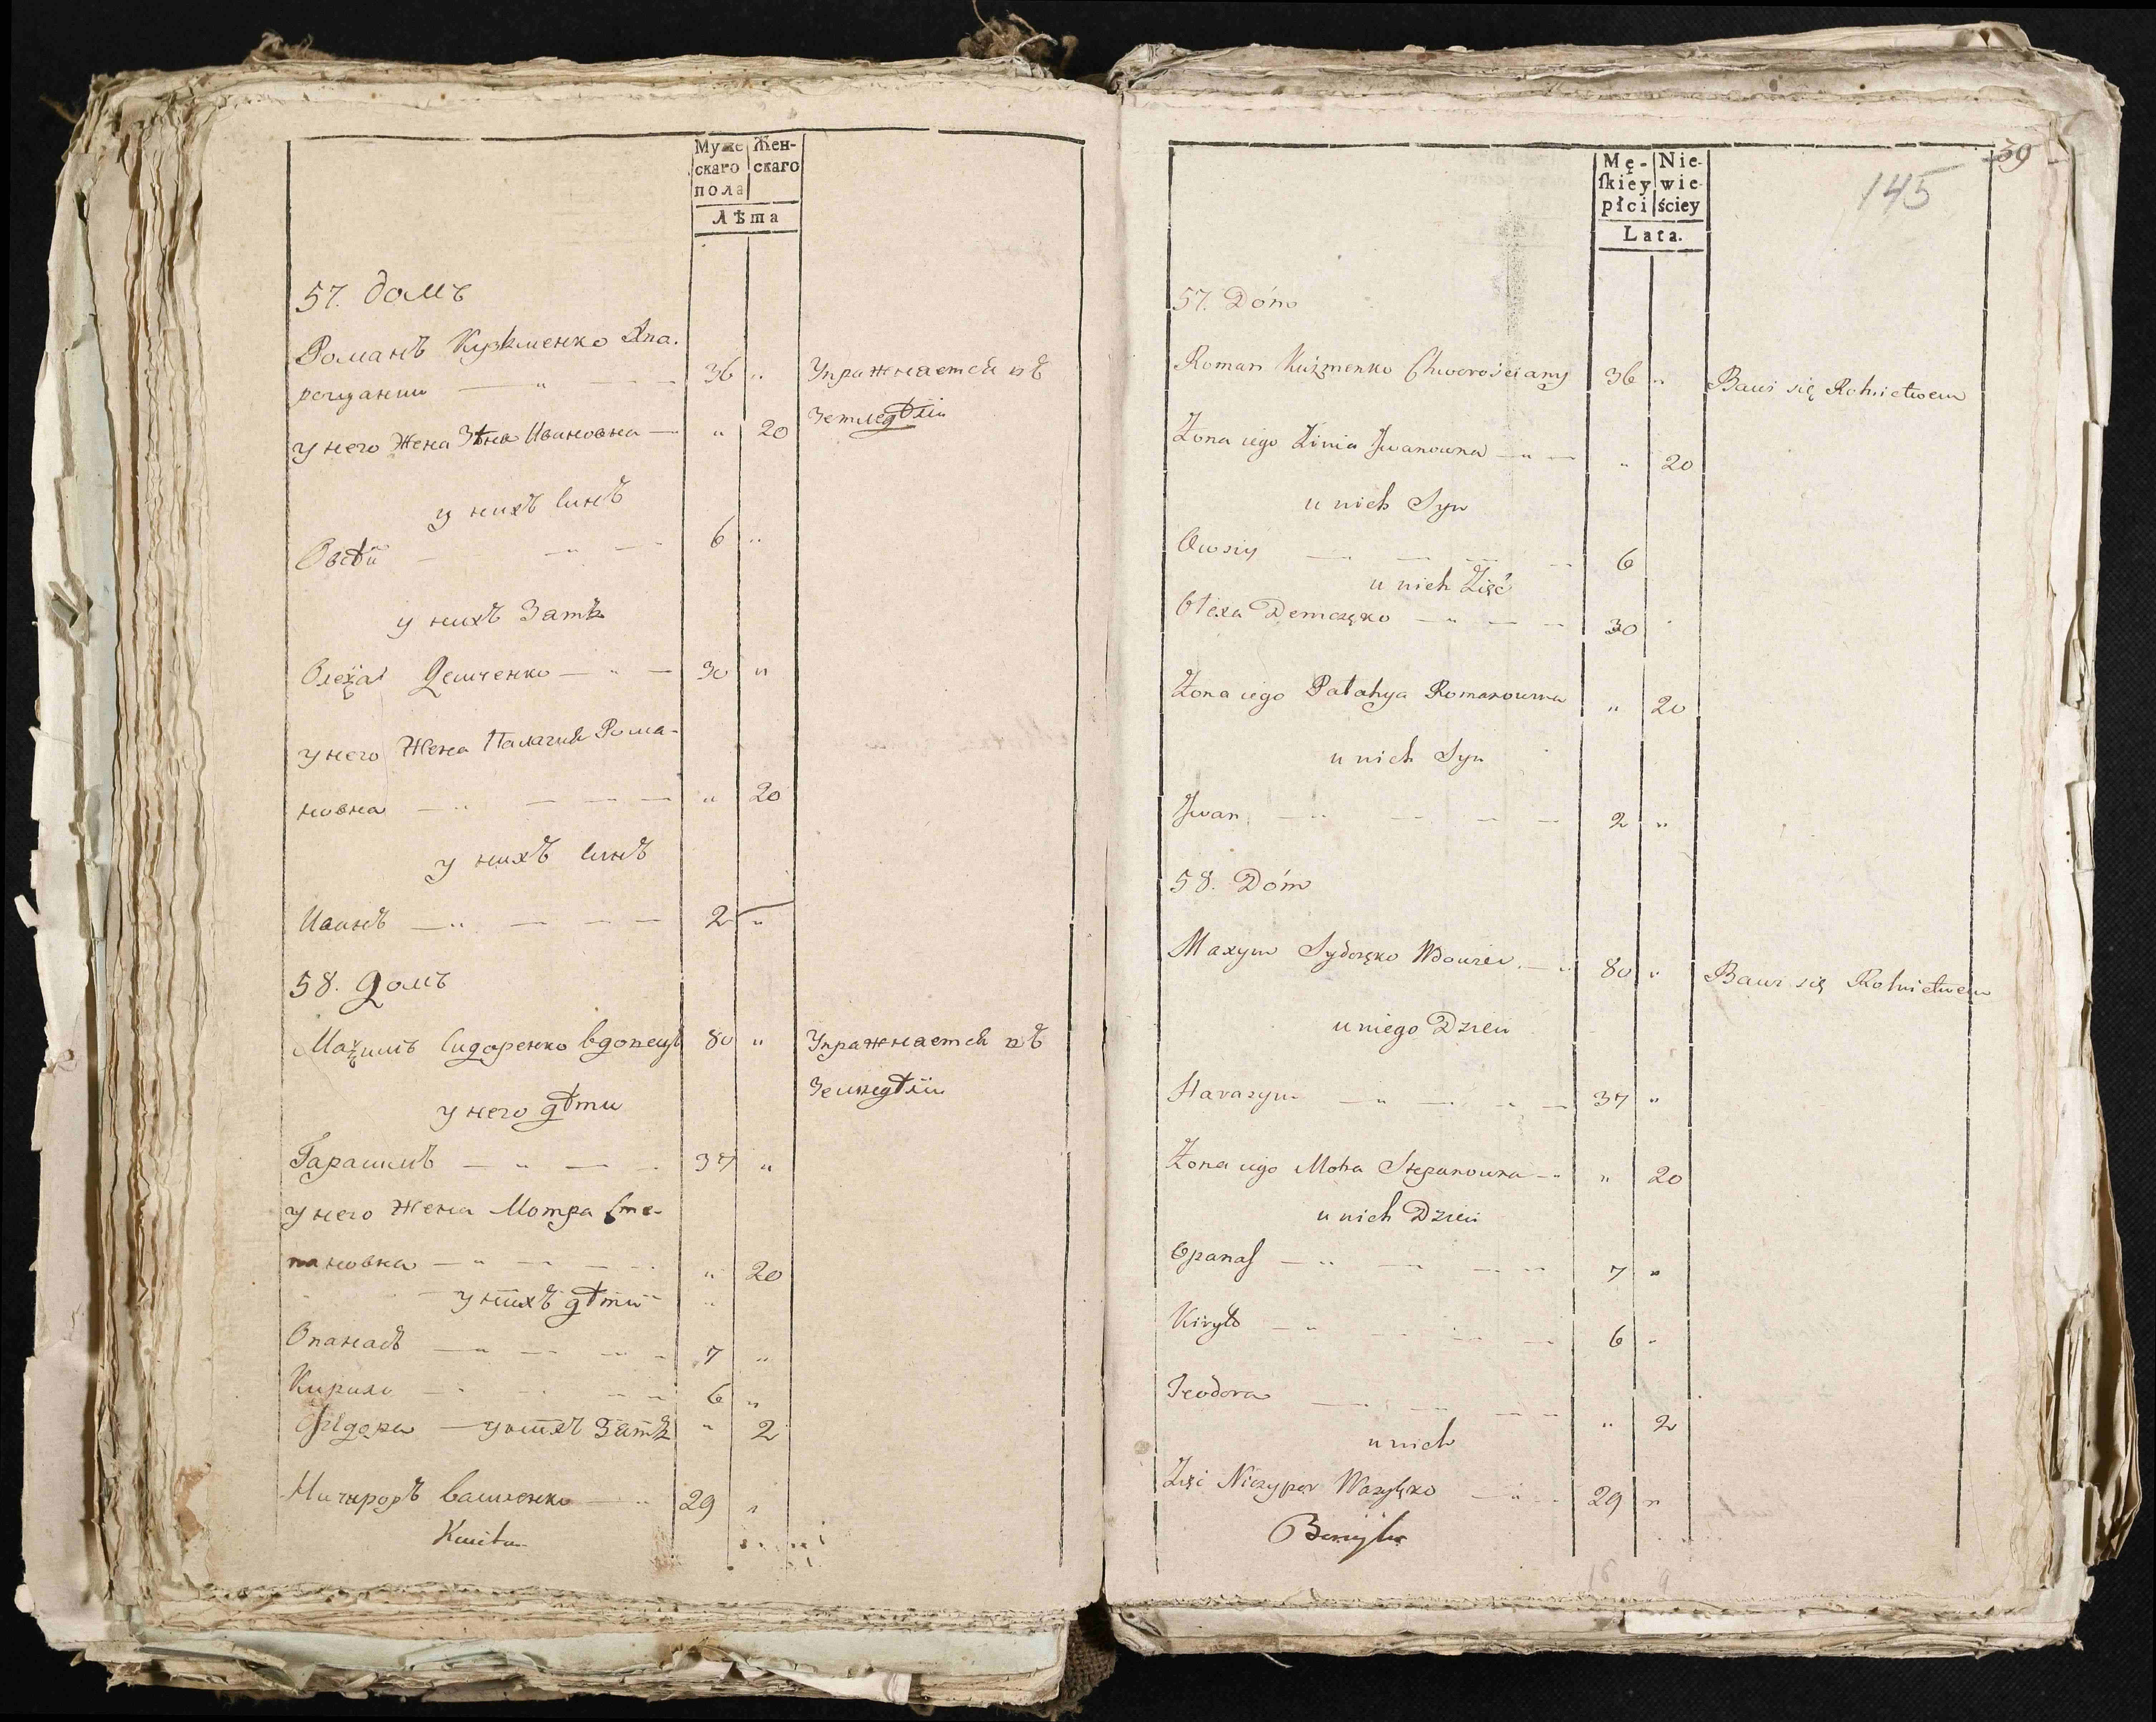 Муже Жен-
скаго скаго
пола
Лѣта
57. домъ
Романъ Кузменко
36 " Упражнается въ
Земледѣліи
у него Жена Зѣна Ивановна — " 20
у нихъ синъ
Овсѣи — " — 6 "
у нихъ Зать
Олеха Демченко — " — 30 "
у него Жена Палагия Рома-
новна — " — — — " 20
у нихъ синъ
Иванъ — " — — — 2 "
58. домъ
Махимъ Сидоренко вдовецъ 80 " Упражнается въ
Земледѣліи
у него дѣти
Гарасимъ — " — 37 "
у него Жена Мотра Сте-
пановна — " — — — " 20
у нихъ дѣти "
Опанасъ — " — — — 7 "
Кирило — " — — — 6 "
Фидора — у нихъ Зать " 2
Ничипоръ Василенко — " 29 "
39
145
Mę- Nie-
ſkiéy wie-
płci ściey
Lata.
57. Dóm
Roman Kuźmenko Chworościany 36 " Bawi się Rolnictwem
Żona iego Zinia Jwanowna — " — " 20
u nich Syn
Owsiy — — — — 6
u nich Zięć
Olexa Demczęko — " — — 30 "
Żona iego Palahya Romanowna " 20
u nich Syn
Jwan — " — — — 2 "
58. Dóm
Maxym Sydoręko Wdowiec — " 80 " Bawi się Rolnictwem
u niego Dzieci
Harasym — " — " — 37 "
Żona iego Motra Stepanowna — " " 20
u nich Dzieci
Opanaſ — " — — — 7 "
Kiryło — " — — — 6 "
Teodora — — — — " 2
u nich
Zięć Niczypor Wasyłęko — " — 29 "